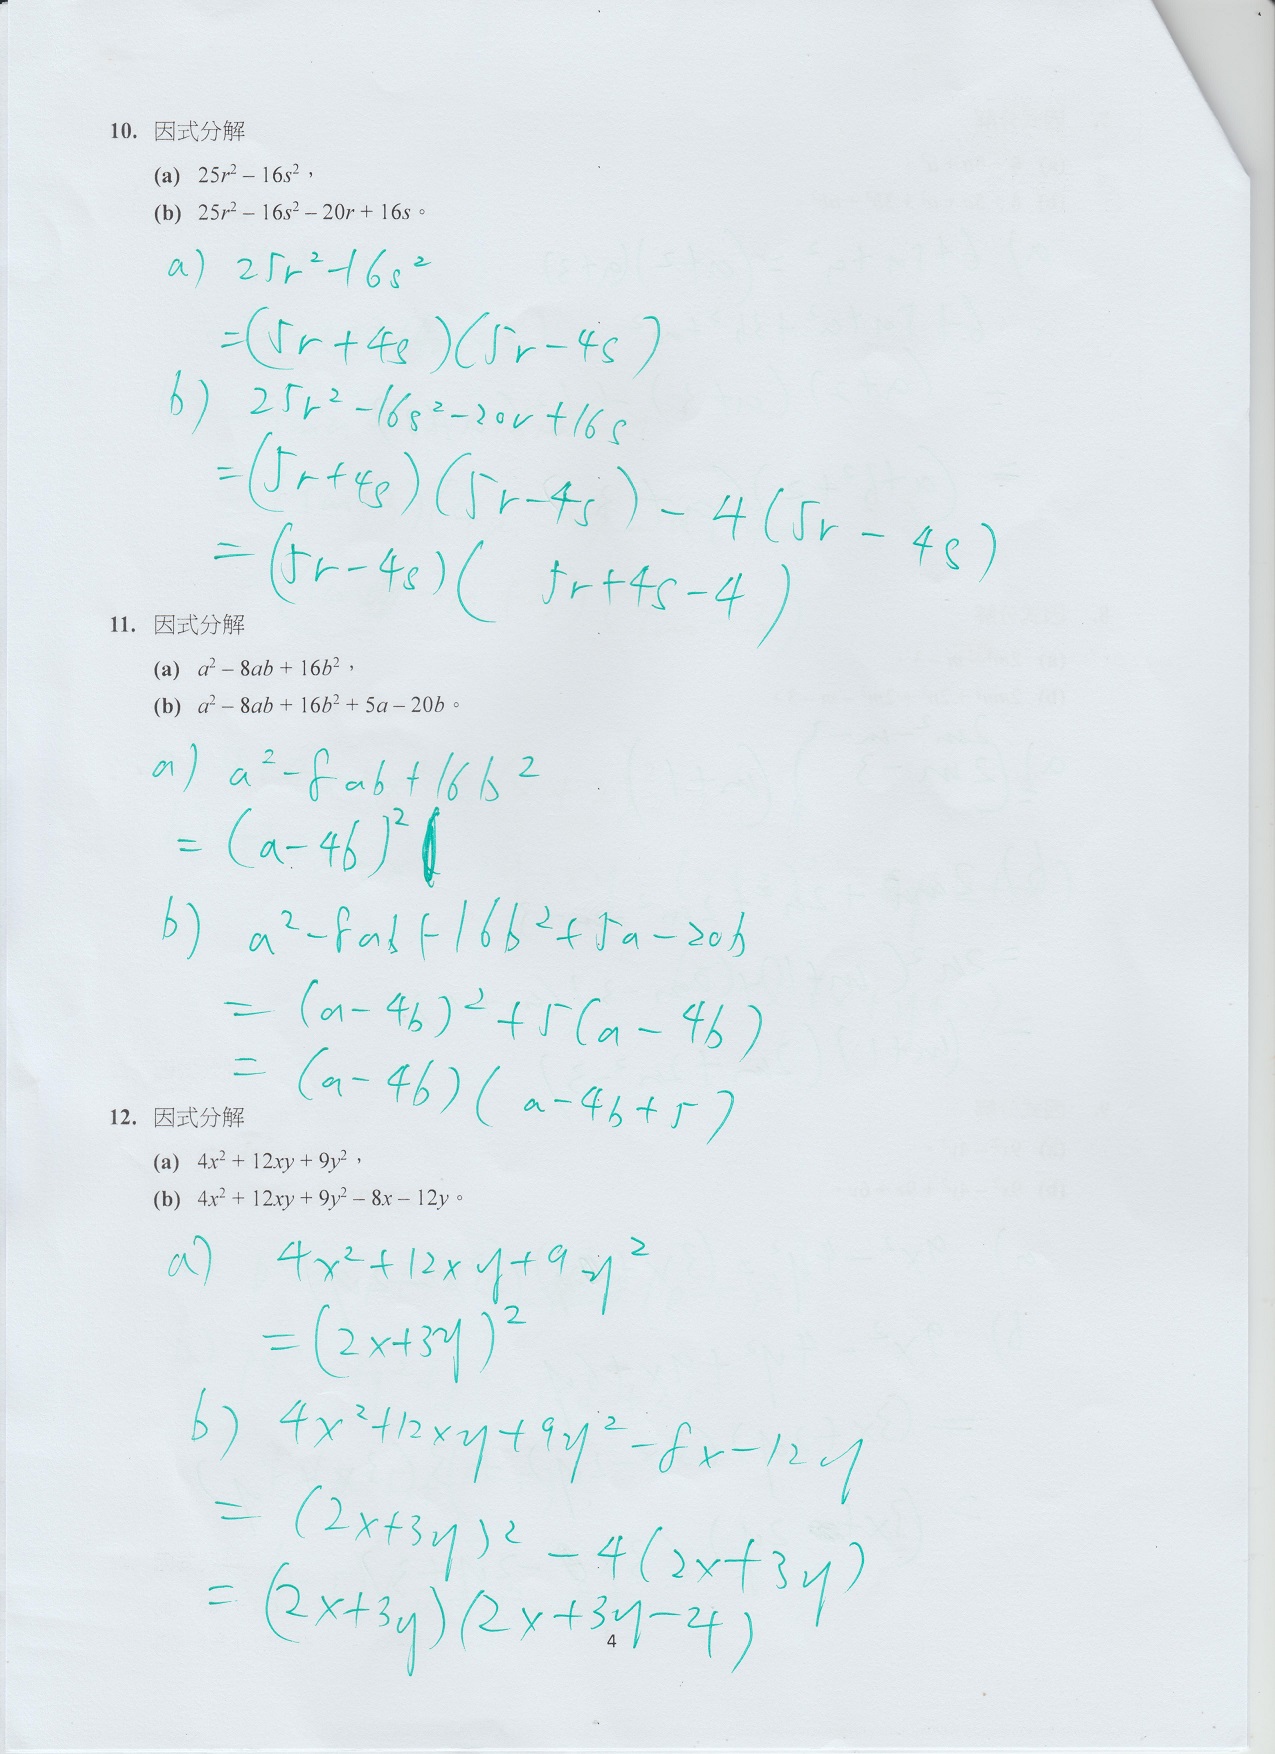 10. 因式分解
(a) 25r² – 16s²，
(b) 25r² – 16s² – 20r + 16s。
a) 25r²-16s²
=(5r+4s)(5r-4s)
b) 25r²-16s²-20r+16s
=(5r+4s)(5r-4s)-4(5r-4s)
=(5r-4s)(5r+4s-4)
11. 因式分解
(a) a² – 8ab + 16b²，
(b) a² – 8ab + 16b² + 5a – 20b。
a) a²-8ab+16b²
=(a-4b)²
b) a²-8ab+16b²+5a-20b
=(a-4b)²+5(a-4b)
=(a-4b)(a-4b+5)
12. 因式分解
(a) 4x² + 12xy + 9y²，
(b) 4x² + 12xy + 9y² – 8x – 12y。
a) 4x²+12xy+9y²
=(2x+3y)²
b) 4x²+12xy+9y²-8x-12y
=(2x+3y)²-4(2x+3y)
=(2x+3y)(2x+3y-4)
4